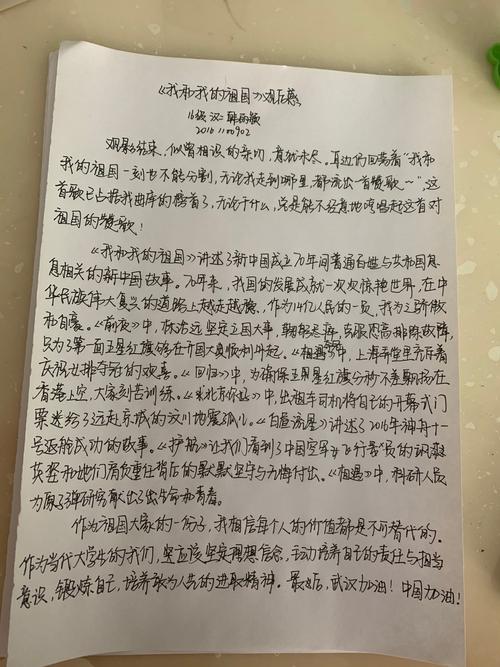 《我和我的祖国》观后感
16级 汉二
2016110902
观影结束，似曾相识的亲切，意犹未尽。耳边仍回荡着“我和
我的祖国一刻也不能分割，无论我走到哪里，都流出一首赞歌～”，这
首歌已占据我曲库的榜首了，无论干什么，总是能不经意地哼唱起这首对
祖国的赞歌！
《我和我的祖国》讲述了新中国成立70年间普通百姓与共和国息
息相关的新中国故事。70年来，我国的发展成就一次次惊艳世界，在中
华民族伟大复兴的道路上越走越稳，作为14亿人民的一员，我为之骄傲
和自豪。《前夜》中，林治远坚定立国大事，克服恐高排除故障，
只为了第一面五星红旗能够在开国大典顺利升起。《相遇》中，上海弄堂里齐声着
庆祝女排夺冠的欢喜。《回归》中，为确保五星红旗分秒不差飘扬在
香港上空，大家刻苦训练。《北京你好》中，出租车司机将自己的开幕式门
票送给了远赴京城的汶川地震孤儿。《白昼流星》讲述了2016年神舟十一
号返航成功的故事。《护航》让我们看到了中国空军女飞行员的飒爽
英姿和她们肩负重任背后的默默坚守与无悔付出。《相遇》中，科研人员
为原子弹研究献出了生命和青春。
作为祖国大家的一份子，我相信每个人的价值都是不可替代的。
作为当代大学生的我们，更应该坚定理想信念，主动培养自己的责任与担当
意识，锻炼自己，培养敢为人先的进取精神。最后，武汉加油！中国加油！